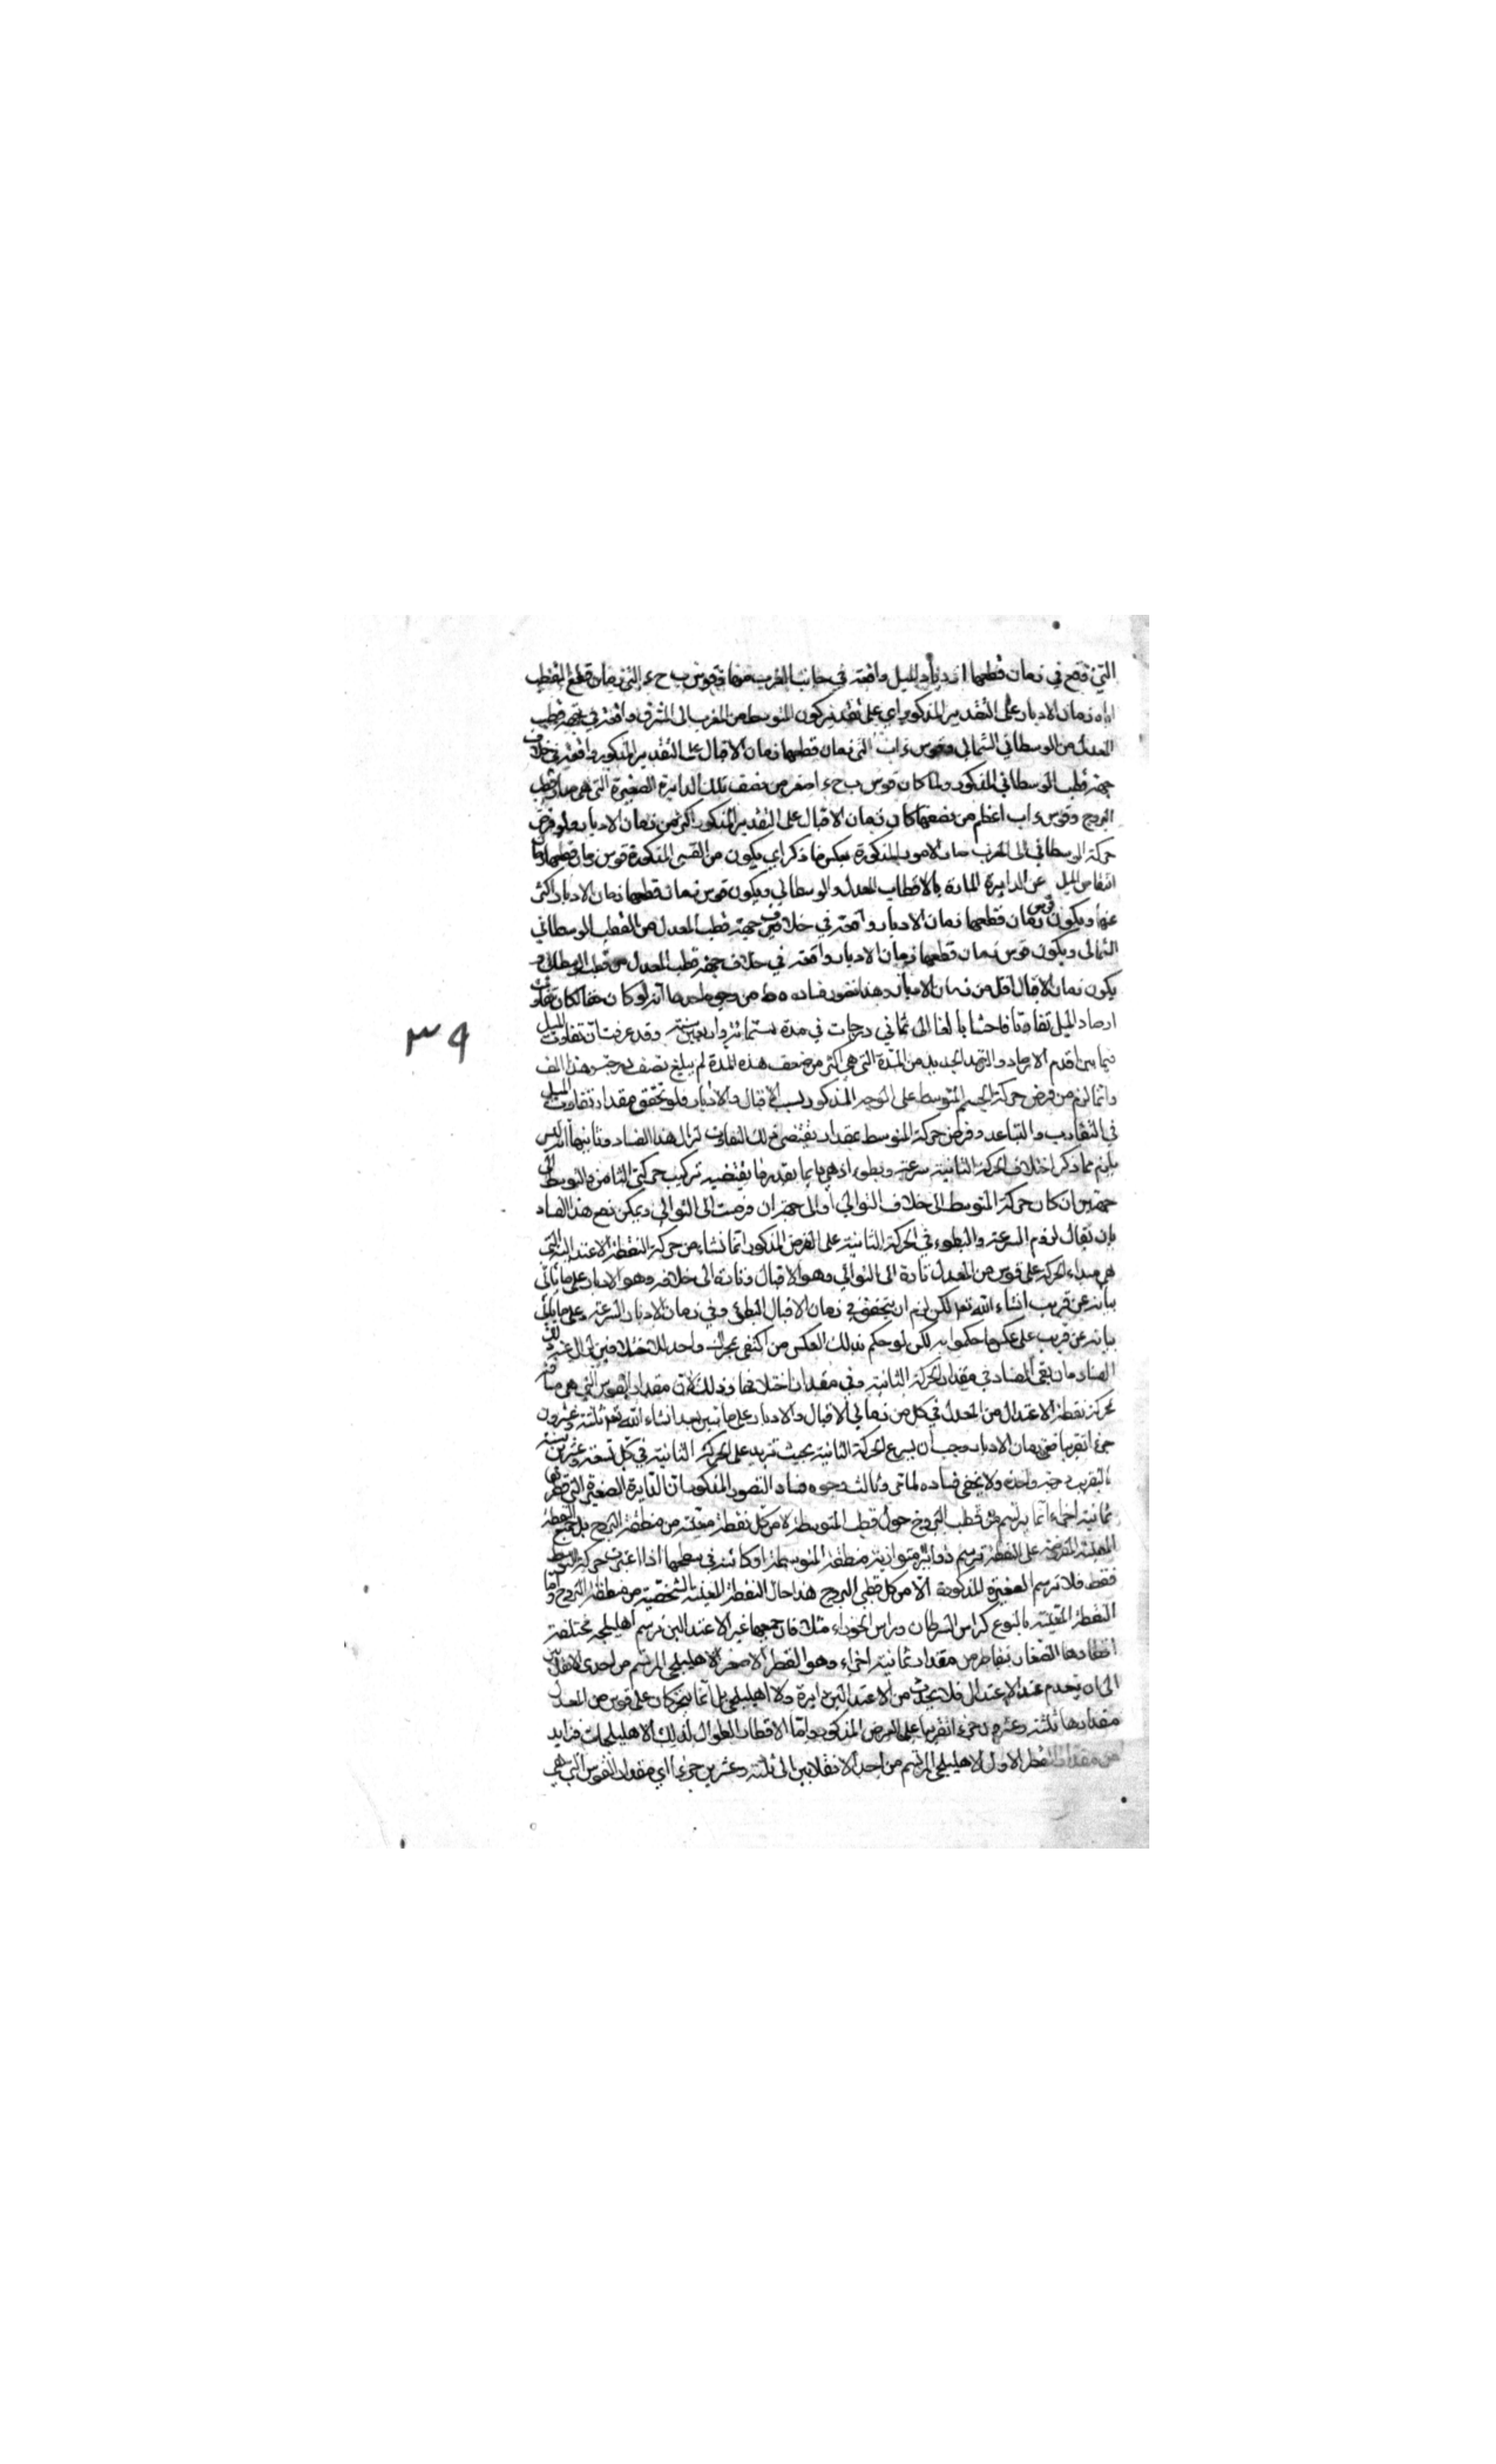 التي تقع في زمان قطعها ازدياد الميل واقعة في جانب الغرب منها فقوس ب ح ء التي زمان قطع القطب
اياه زمان الادبار على التقدير المذكور اي على تقدير كون المتوسط من المغرب الى المشرق واقعة في جهة قطب
المعدل من الوسطاني الشمالي وقوس ء ا ب التي زمان قطعها زمان الاقبال على التقدير المذكور واقعة في خلاف
جهة قطب الوسطاني المذكور ولما كان قوس ب ح ء اصغر من نصف تلك الدايرة الصغيرة التي هي مدار قطب
البروج وقوس ء ا ب اعظم من نصفها كان زمان الاقبال على التقدير المذكور اكثر من زمان الادبار ولو فرض
حركة الوسطاني الى المغرب الامور المذكورة بعكس ما ذكر اي يكون من القسي المذكورة قوس زمان قطعها زمان
انتقاص الميل عن الدايرة المارة بالاقطاب المعدل والوسطاني ويكون قوس زمان قطعها زمان الادبار اكثر
عنها ويكون قوس زمان قطعها زمان الادبار واقعة في خلاف جهة قطب المعدل من القطب الوسطاني
الشمالي ويكون قوس زمان قطعها زمان الادبار واقعة في خلاف جهة قطب المعدل من قطب الوسطاني و
يكون زمان الاقبال اقل من زمان الادبار وهذا تصور فساده من وجوه احدها انه لو كان حقا لكان تفاوت
ارصاد الميل تفاوتا فاحشا بالغا الى ثماني درجات في مدة ستمائة واربعين سنة وقد عرفت ان تفاوت الميل
فيما بين اقدم الارصاد والرصد الجديد من المدة التي هي اكثر من ضعف هذه المدة لم يبلغ نصف درجة وهذا
وانما لزم من فرض حركة الجسم المتوسط على الوجه المذكور بسبب الاقبال والادبار فلو تحقق مقدار تفاوت الميل
في التقارب والتباعد وفرض حركة المتوسط بمقدار يقتضي ذلك التفاوت لزال هذا الفساد وثانيها انه ليس
يلزم مما ذكر اختلاف الحركة الثانية سرعة وبطوء اذ هي دايما بقدر ما يقتضيه تركيب حركتي الثامن والمتوسط الى
جهتين ان كان حركة المتوسط الى خلاف التوالي او الى جهة ان فرضت الى التوالي ويمكن دفع هذا الفساد
بان يقال لزوم السرعة والبطوء في الحركة الثانية على الفرض المذكور انما نشاء من حركة النقطة الاعتدالية التي
هي مبداء الحركة على قوس من المعدل تارة الى التوالي وهو الاقبال وتارة الى خلافه وهو الادبار على ما يأتي
بيانه عن قريب انشاء الله تعالى لكن لزم ان يتحقق في زمان الاقبال البطؤ وفي زمان الادبار السرعة وعلى ما يأتي
بيانه عن قريب على عكس ما حكموا به لكن لو حكم بذلك العكس من اكتفى بمحرك واحد للاختلافين
الفساد يبقى الفساد في مقدار الحركة الثانية وفي مقدار اختلافها وذلك لان مقدار القوس التي هي مسافة
تحرك نقطة الاعتدال من المعدل في كل من زماني الاقبال والادبار على ما تبين بعد انشاء الله تعالى ثلثة وعشرون
جزءا تقريبا ففي زمان الادبار وجب ان يسرع الحركة الثانية بحيث تزيد على الحركة الثانية في كل تسعة وعشرين سنة
بالتقريب درجة واحدة ولا يخفى فساده لما مر وثالث وجوه فساد التصور المذكور ان الدايرة الصغيرة التي قطرها
ثمانية اجزاء انما يرتسم من قطب البروج حول قطب المتوسط لا من كل نقطة معينة من منطقة البروج بل جميع النقطة
المعينة المفروضة على المنطقة ترسم دوائر متوازية منطقة المتوسط او كائنة في سطحها اذا اعتبرت حركة المتوسط
فقط فلا ترسم الصغيرة المذكورة الا من كل قطبي البروج هذا حال النقطة المعينة بالشخصية من منطقة البروج واما
النقطة المعينة بالنوع كراس السرطان وراس الجوزاء مثلا فان جميعها غير الاعتدالين ترسم اهليلجية مختلفة
اقطارها الصغار بتفاضل من مقدار ثمانية اجزاء وهو القطر الاصغر لاهليلجي المرتسم من احدى الانقلابين
الى ان ينعدم عند الاعتدال فلا يحدث من الاعتدالين دايرة ولا اهليلجي بل انما يتحركان على قوس من المعدل
مقدارها ثلثة وعشرون جزءا تقريبا على الفرض المذكور واما الاقطار الطوال لذلك الاهليلجيات فزايد
من مقدار القطر الاول لاهليلجي المرتسم من احد الانقلابين الى ثلثة وعشرين جزءا اي مقدار القوس التي هي
٣٩